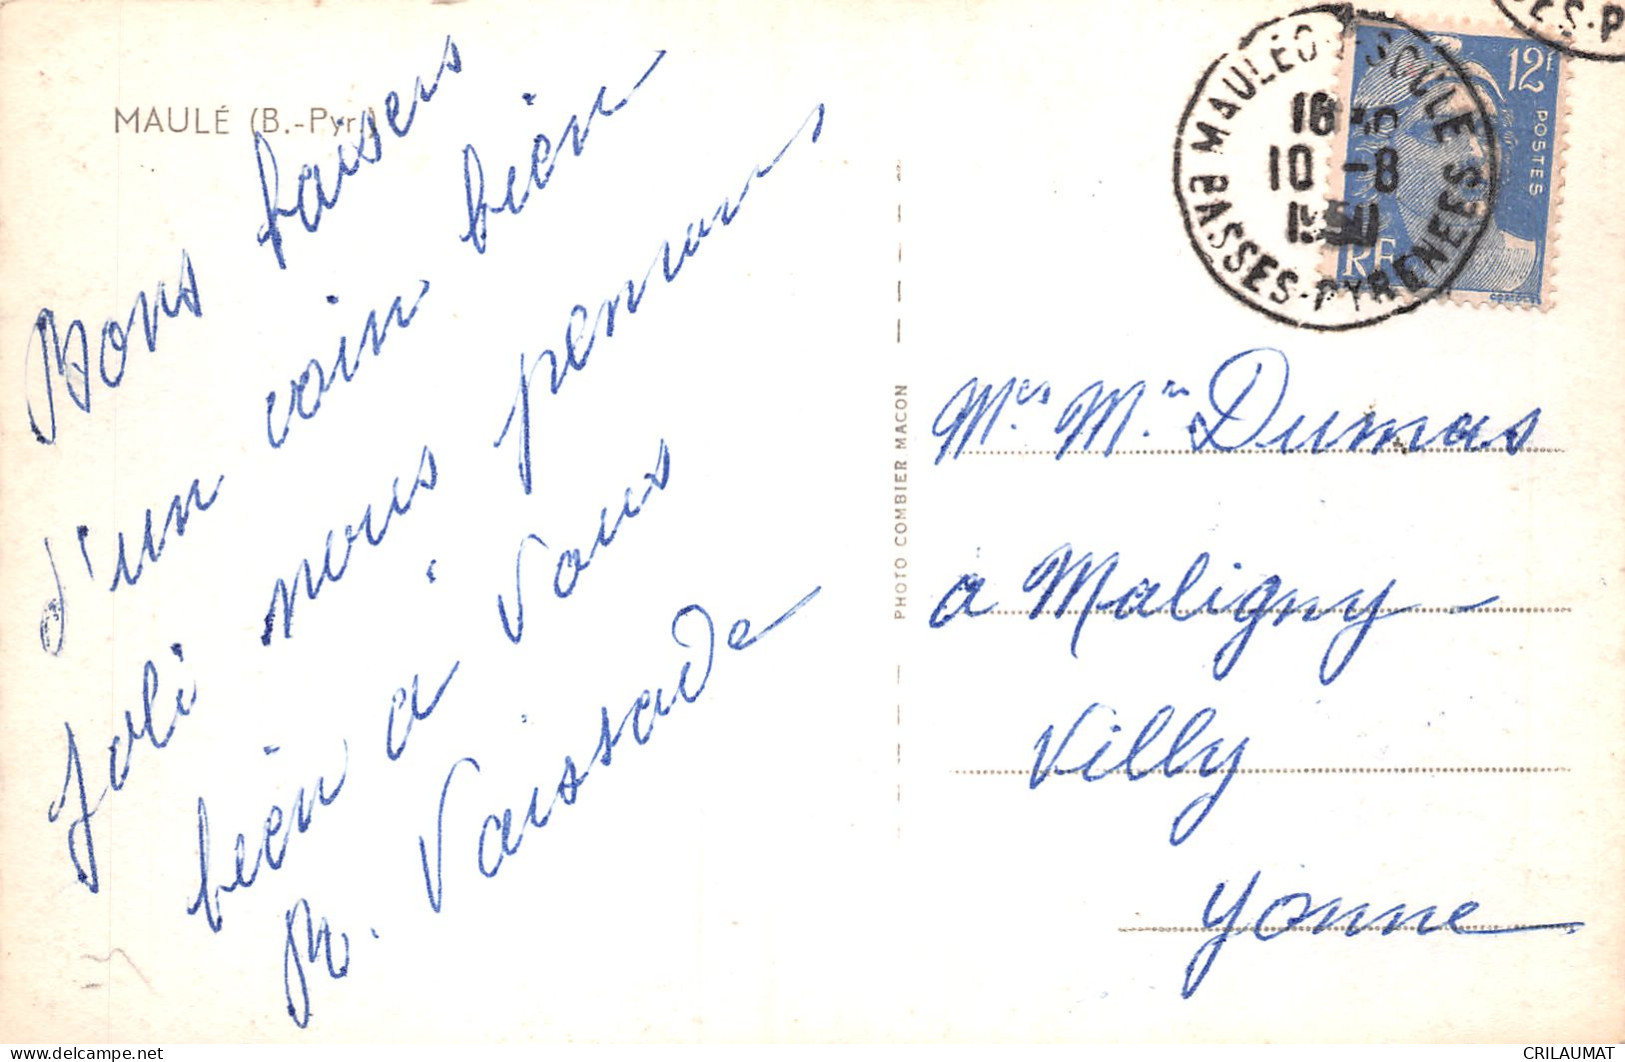 MAULÉ (B.-Pyr.)
Bons baisers
d'un coin bien
joli nous pensons
bien à vous
R. Vaissade
PHOTO COMBIER MACON
MAULÉON-SOULE
10 -8
1950
BASSES-PYRENEES
12F
POSTES
RF
Mes Mr Dumas
à Maligny -
Villy
Yonne
delcampe.net
CRILAUMAT